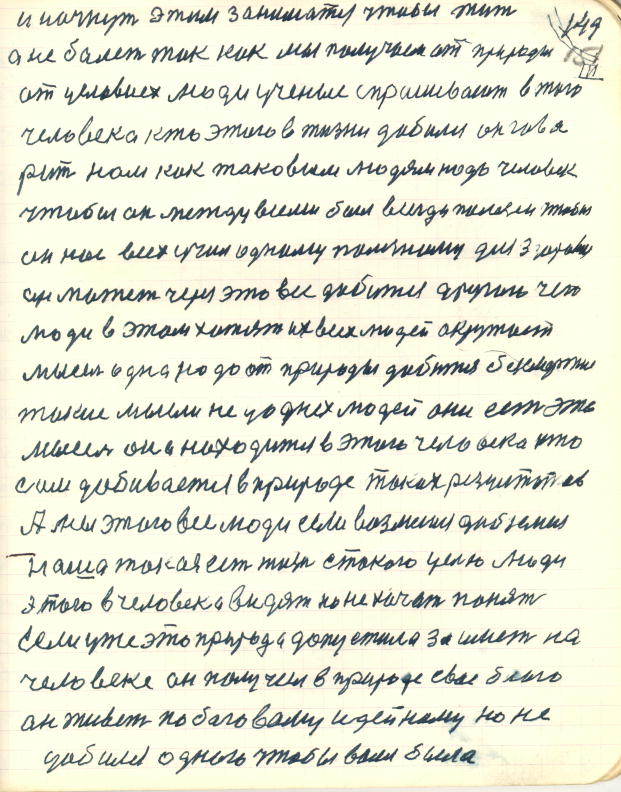 149
и начнут этим заниматся чтобы жит
а не болет так как мы получаем от природы
от условиех люди ученые спрашивают в того
человека кто этого в жизни добился он гово
рит нам как таковым людям надо человек
чтобы он между всеми был всегда полезен чтобы
он нас всех учил одному полезному для здоровия
он может через это все добится другого чего
люди в этом хотят их всех людей окружает
мысль одна надо от природы добится бессмертие
такие мысли не у одних людей они ест это
мысля она находится в этого человека кто
сам добивается в природе таких результатов
А мы этого все люди если возмемся добъемся
наша такая ест жизн с такого целю люди
этого в человека видят но не хочат понят
если уже это природа допустила за имет на
человеке он получил в природе свое благо
он живет по баговому идейному но не
добился одного чтобы воля была